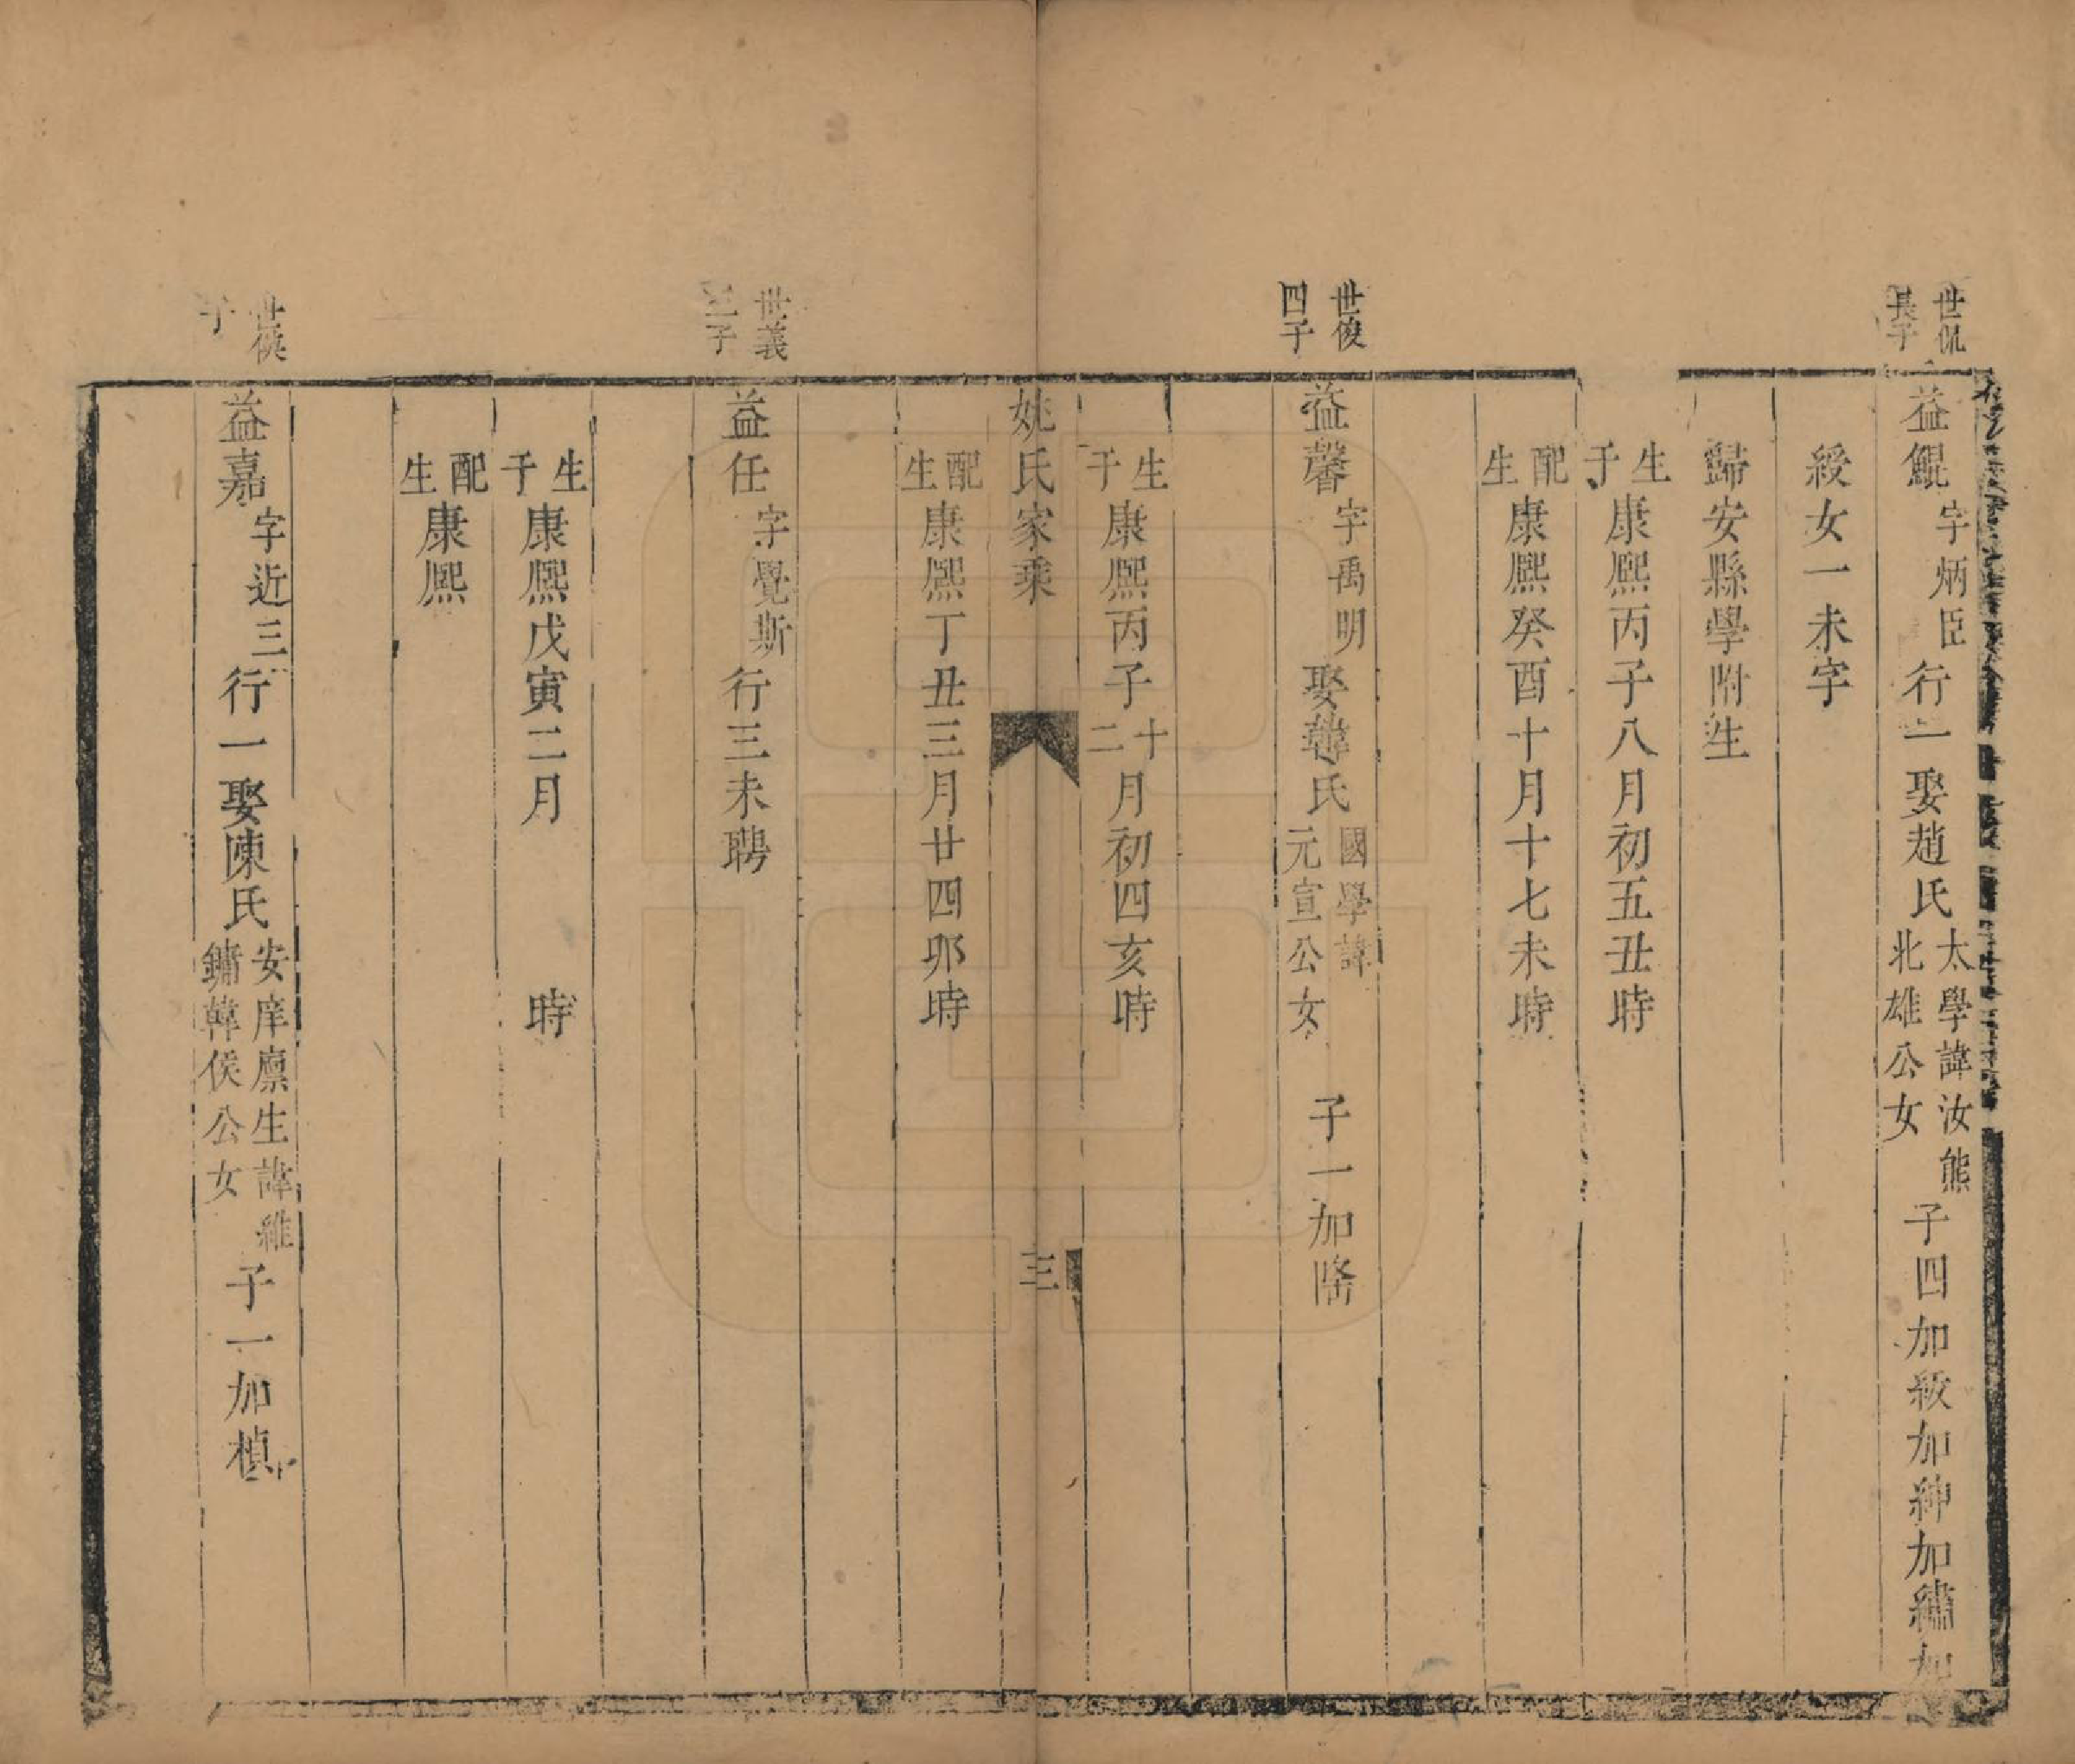 世侃
長子
益鯤字炳臣行一娶趙氏太學諱汝熊北雄公女子四加級加紳加繡加
綬女一未字
歸安縣學附生
生于康熙丙子八月初五丑時
配生康熙癸酉十月十七未時
世俊
四子
益馨字禹明娶韓氏國學諱元宣公女 子一加隆
生于康熙丙子十二月初四亥時
姚氏家乘
三
配生康熙丁丑三月廿四卯時
世義
三子
益任字覺斯行三未聘
生于康熙戊寅二月 時
配生康熙
世僙
子
益嘉字近三行一娶陳氏安庠廪生諱維鏞韓侯公女子一加楨